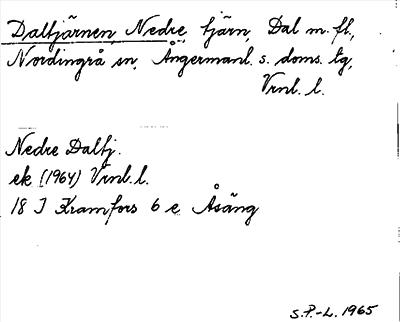 Daltjärnen, Nedre, tjärn, Dal m. fl.,
Nordingrå sn, Ångermanl. s. doms. tg,
Vrnl. l.
Nedre Daltj.
ek (1964) Vrnl. l.
18 I Kramfors 6 e Åsäng
S.P.-L. 1965